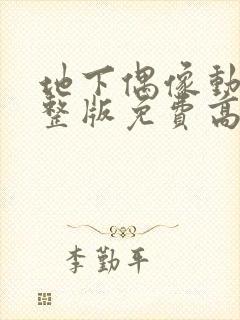 地下偶像動
整版免費高
李勤平